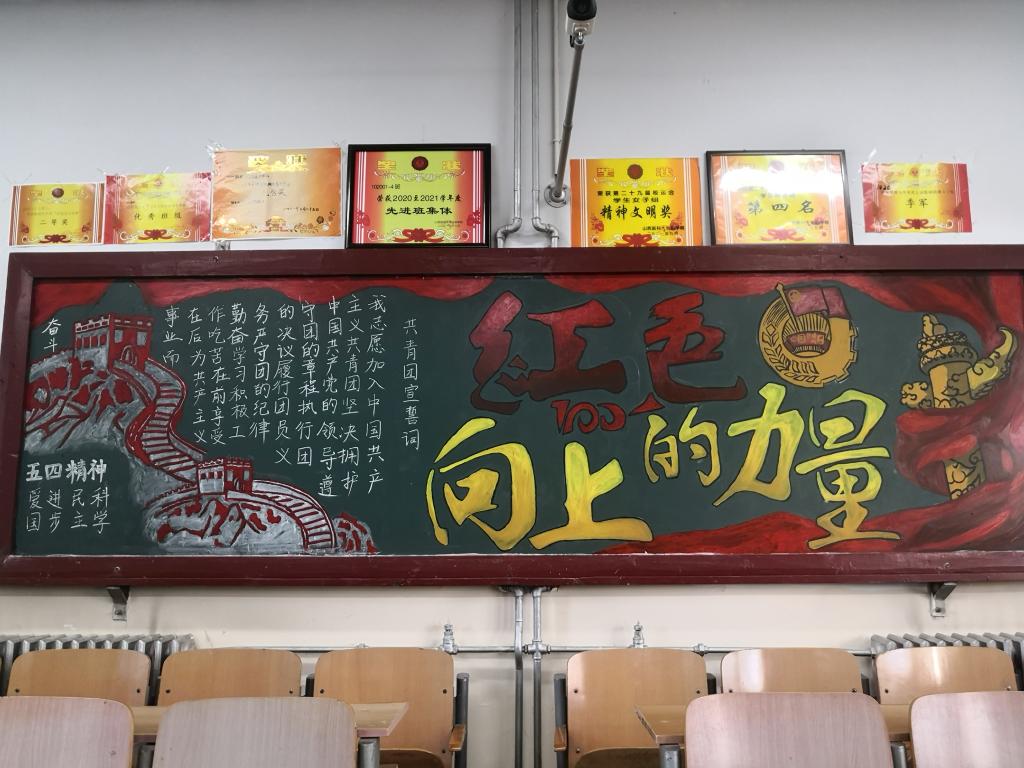 奖状
二等奖
优秀班级
奖状
奖状
102001-4班
荣获2020至2021学年度
先进班集体
奖状
荣获第二十九届校运会
学生女子组
精神文明奖
奖状
第四名
季军
红色
100
向上的力量
共青团宣誓词
我志愿加入中国共产
主义共青团坚决拥护
中国共产党的领导遵
守团的章程执行团
的决议履行团员义
务严守团的纪律
勤奋学习积极工
作吃苦在前享受
在后为共产主义
事业而
奋斗
五四精神
爱国 进步 民主 科学